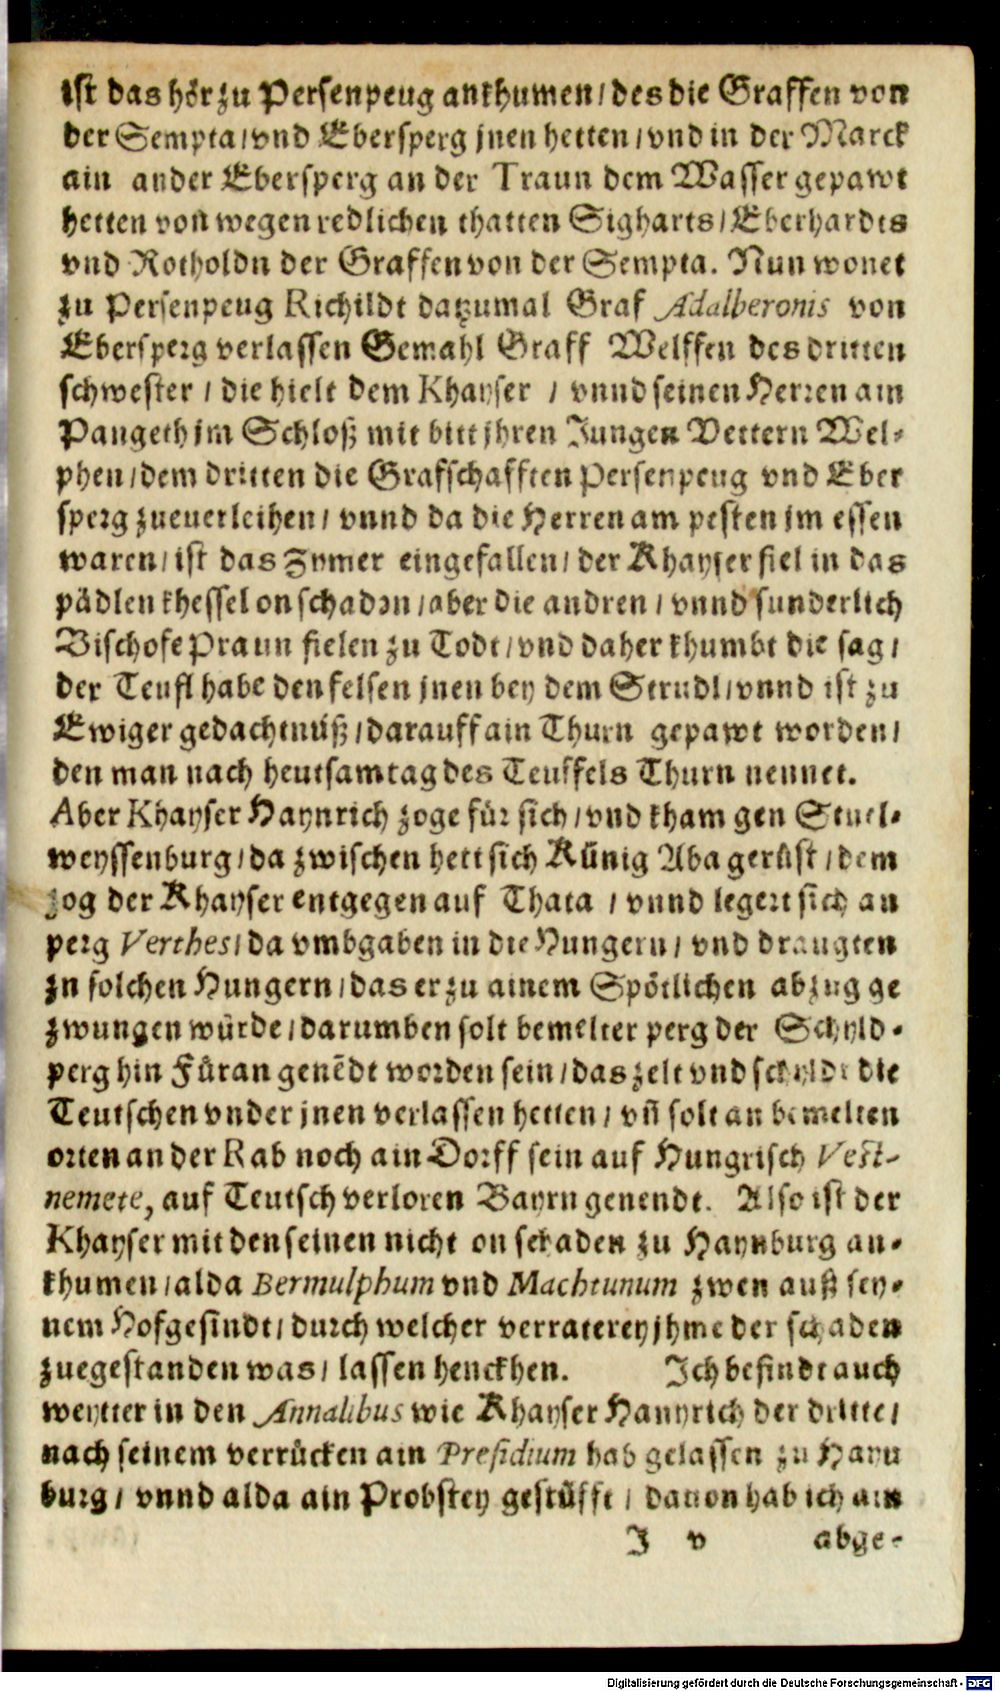 ist das hör zu Persenpeug ankhumen / des die Graffen von
der Sempta / vnd Ebersperg jnen hetten / vnd in der Marck
ain ander Ebersperg an der Traun dem Wasser gepawt
hetten von wegen redlichen thatten Sigharts / Eberhardts
vnd Rotholdn der Graffen von der Sempta. Nun wonet
zu Persenpeug Richildt datzumal Graf Adalberonis von
Ebersperg verlassen Gemahl Graff Welffen des dritten
schwester / die hielt dem Khayser / vnnd seinen Herren ain
Pangeth jm Schloß mit bitt jhren Jungen Vettern Wel-
phen / dem dritten die Grafschafften Persenpeug vnd Eber
sperg zueuerleihen / vnnd da die Herren am pesten jm essen
waren / ist das Zymer eingefallen / der Khayser fiel in das
pädlen khessel on schaden / aber die andren / vnnd sunderlich
Bischofe Praun fielen zu Todt / vnd daher khumbt die sag /
der Teufl habe den felsen jnen bey dem Strudl / vnnd ist zu
Ewiger gedachtnüß / darauff ain Thurn gepawt worden /
den man nach heutsamtag des Teuffels Thurn nennet.
Aber Khayser Haynrich zoge für sich / vnd kham gen Stuel-
weyssenburg / da zwischen hett sich Künig Aba gerüst / dem
zog der Khayser entgegen auf Thata / vnnd legert sich an
perg Verthes / da vmbgaben in die Hungern / vnd drangten
zn solchen Hungern / das er zu ainem Spötlichen abzug ge
zwungen würde / darumben solt bemelter perg der Schyld-
perg hin Füran genẽdt worden sein / das zelt vnd schyldt die
Teutschen vnder jnen verlassen hetten / vñ solt an bemelten
orten an der Rab noch ain Dorff sein auf Hungrisch Vest-
nemete, auf Teutsch verloren Bayrn genendt. Also ist der
Khayser mit den seinen nicht on schaden zu Haynburg an-
khumen / alda Bermulphum vnd Machtunum zwen auß sey-
nem Hofgesindt / durch welcher verraterey jhme der schaden
zuegestanden was / lassen henckhen. Ich befindt auch
weytter in den Annalibus wie Khayser Hannrich der dritte /
nach seinem verrücken ain Presidium hab gelassen zu Hayn
burg / vnnd alda ain Probstey gestüfft / dauon hab ich ain
J v abge-
Digitalisierung gefördert durch die Deutsche Forschungsgemeinschaft - DFG